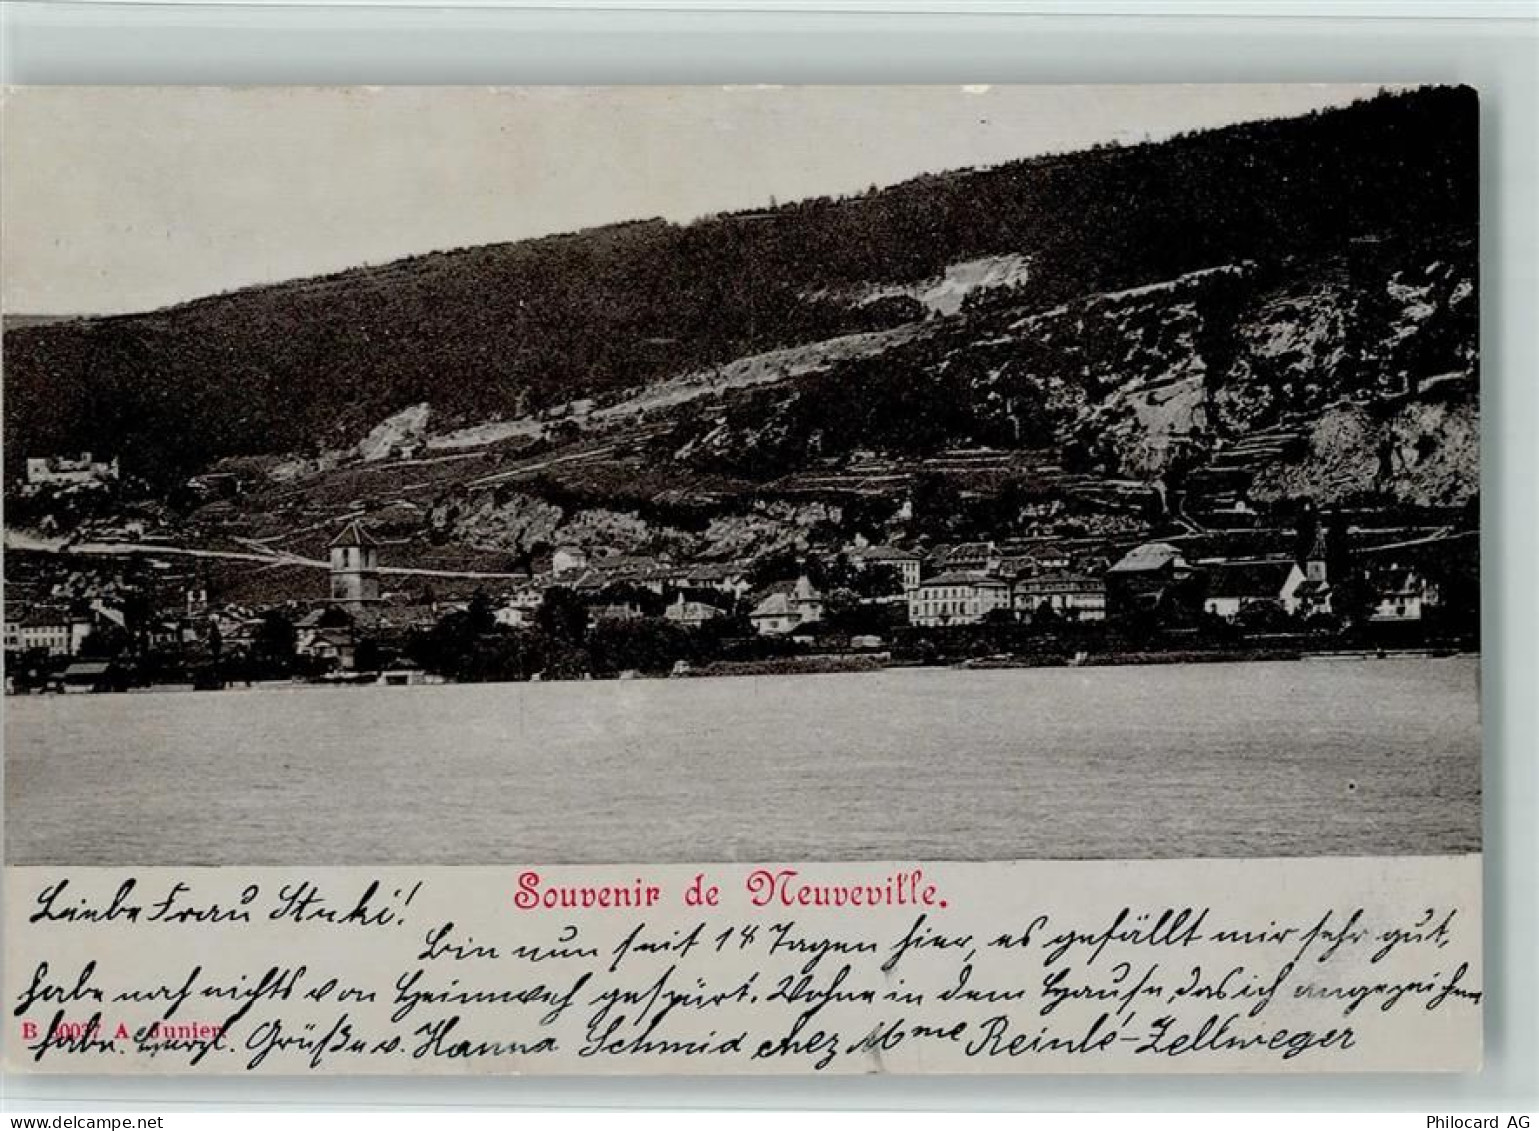 Souvenir de Neuveville.
Liebe Frau Stuki!
Bin nun seit 14 Tagen hier, es gefällt mir sehr gut,
habe noch nichts von Heimweh gespürt. Wohne in dem Hause, das ich angezeichnet
B A. Junier.
habe. Herzl. Grüße v. Hanna Schmid chez Mme Reinlé-Zellweger
www.delcampe.net
Philocard AG